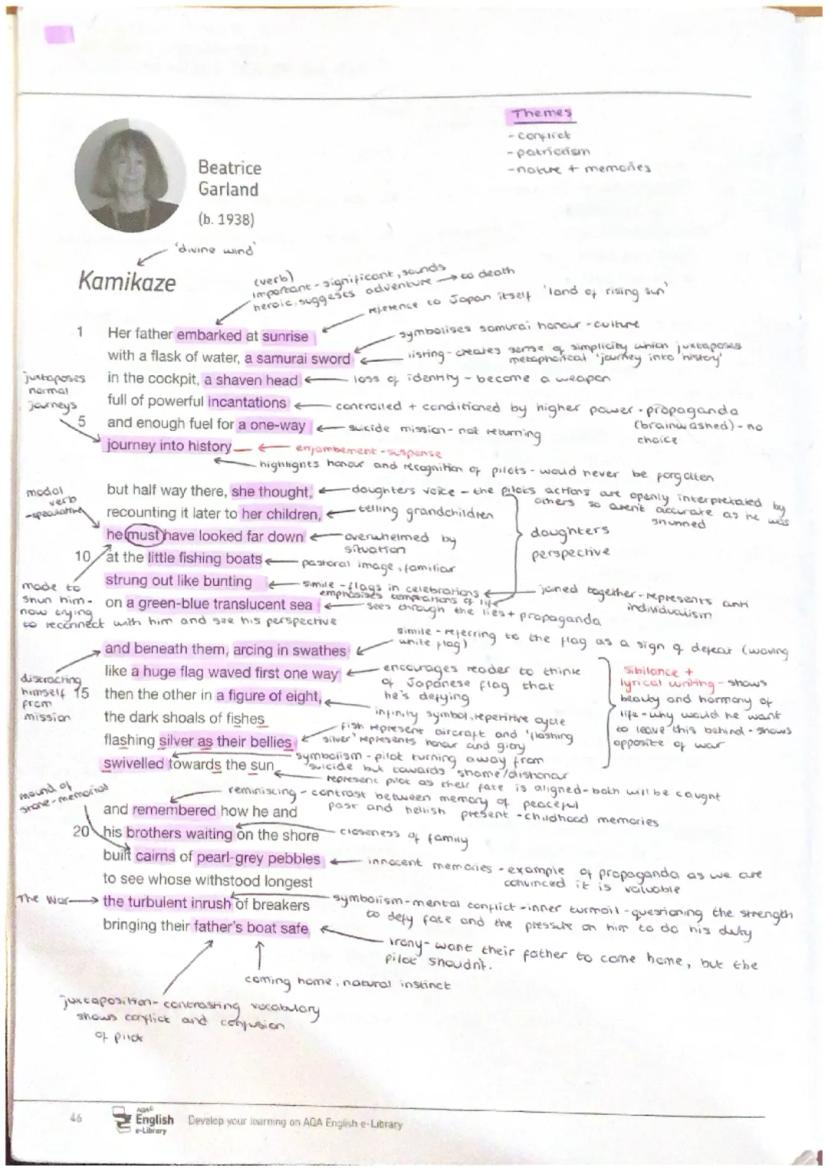 Themes
- conflict
- patriotism
- nature + memories
Beatrice
Garland
(b. 1938)
'divine wind'
Kamikaze
(verb)
important - significant, sounds
heroic, suggests adventure → to death
reference to Japan itself 'land of rising sun'
1 Her father embarked at sunrise
symbolises samurai honour - culture
with a flask of water, a samurai sword
listing - creates sense of simplicity which juxtaposes
metaphorical 'journey into history'
juxtaposes
normal
journeys
in the cockpit, a shaven head
loss of identity - become a weapon
full of powerful incantations
controlled + conditioned by higher power - propaganda
(brainwashed) - no
choice
5 and enough fuel for a one-way
suicide mission - not returning
journey into history
enjambement - suspense
highlights honour and recognition of pilots - would never be forgotten
modal
verb
- speculating
but half way there, she thought,
daughters voice - the pilots actions are openly interpretated by
others so aren't accurate as he was
shunned
recounting it later to her children,
telling grandchildren
he must have looked far down
overwhelmed by
situation
daughters
perspective
10 at the little fishing boats
pastoral image, familiar
strung out like bunting
simile - flags in celebrations
emphasises
joined together - represents anti
individualism
made to
shun him -
now trying
to reconnect with him and see his perspective
on a green-blue translucent sea
sees through the lies + propaganda
simile - referring to the flag as a sign of defeat (waving
white flag)
and beneath them, arcing in swathes
like a huge flag waved first one way
encourages reader to think
of Japanese flag that
he's defying
distracting
himself
from
mission
15 then the other in a figure of eight,
infinity symbol, repetitive cycle
the dark shoals of fishes
fish represent aircraft and 'flashing
silver' represents honour and glory
flashing silver as their bellies
symbolism - pilot turning away from
suicide but towards shame/dishonor
swivelled towards the sun
represent pilot as their fate is aligned - both will be caught
sibilance +
lyrical writing - shows
beauty and harmony of
life - why would he want
to leave this behind - shows
opposite of war
mound of
stone - memorial
reminiscing - contrast between memory of peaceful
past and hellish present - childhood memories
and remembered how he and
20 his brothers waiting on the shore
closeness of family
built cairns of pearl-grey pebbles
innocent memories - example of propaganda as we are
convinced it is valuable
to see whose withstood longest
The War
the turbulent inrush of breakers
symbolism - mental conflict - inner turmoil - questioning the strength
to defy fate and the pressure on him to do his duty
bringing their father's boat safe
irony - want their father to come home, but the
pilot shouldn't.
coming home, natural instinct
juxtaposition - contrasting vocabulary
shows conflict and confusion
of pilot
46
AQA
English
e-Library
Develop your learning on AQA English e-Library